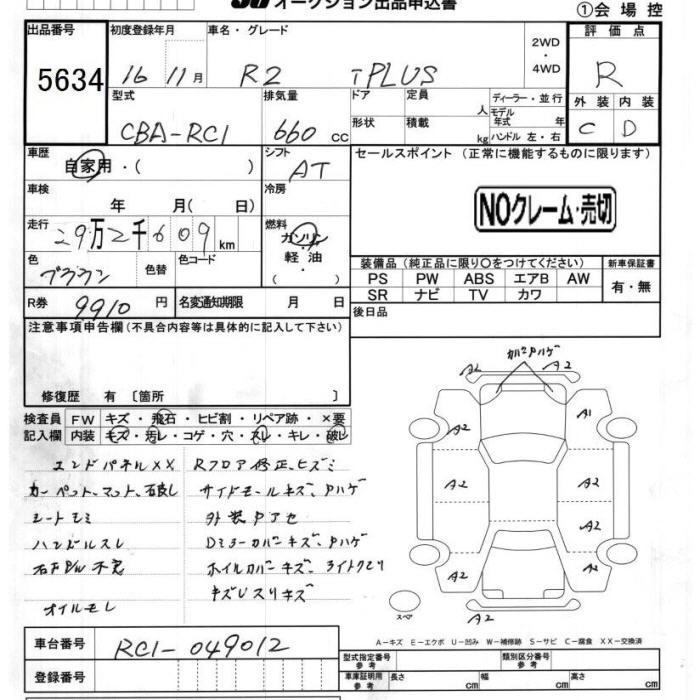 オークション出品申込書
①会場控
出品番号 初度登録年月 車名・グレード 2WD・4WD 評価点
5634 16 11月 R2 i PLUS R
型式 排気量 ドア 定員 人 ディーラー・並行 外装 内装
CBA-RC1 660 cc 形状 積載 kg モデル年式 年 ハンドル 左・右 C D
車歴 自家用・( ) シフト AT セールスポイント(正常に機能するものに限ります)
車検 年 月( 日) 冷房
NOクレーム・売切
走行 29万2千609km 燃料 ガソリン・軽油・( )
色 ブラウン 色替 色コード
装備品(純正品に限り○をつけてください) 新車保証書
PS PW ABS エアB AW 有・無
SR ナビ TV カワ
R券 9910円 名変通知期限 月 日 後日品
注意事項申告欄(不具合内容等は具体的に記入して下さい)
修復歴 有〔箇所 〕
検査員 FW キズ・飛石・ヒビ割・リペア跡・×要
記入欄 内装 キズ・汚レ・コゲ・穴・スレ・キレ・破レ
エンドパネルXX Rフロア修正、ヒズミ
カーペット、マット、 サイドモールキズ、Pハゲ
シートモミ 外装Pアセ
ハンドルスレ Dミラーカバーキズ、Pハゲ
ホイルカバーキズ ライトクモリ
オイルモレ キズUスリキズ
カバーPハゲ
A2 A2
A2 A1
A2 A2
A2
A2 A2
A2
スペア
A－キズ E－エクボ U－凹み W－補修跡 S－サビ C－腐食 XX－交換済
車台番号 RC1-049012
登録番号
型式指定番号 参考 類別区分番号 参考
車庫証明用 参考 長さ cm 幅 cm 高さ cm